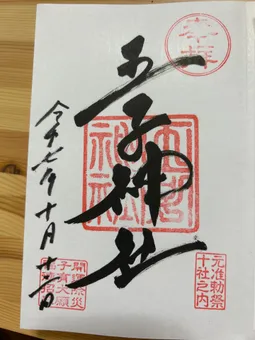 奉拝
王子神社
王子神社
元准勅祭
十社之内
開運除災
子育大願
令和七年十月